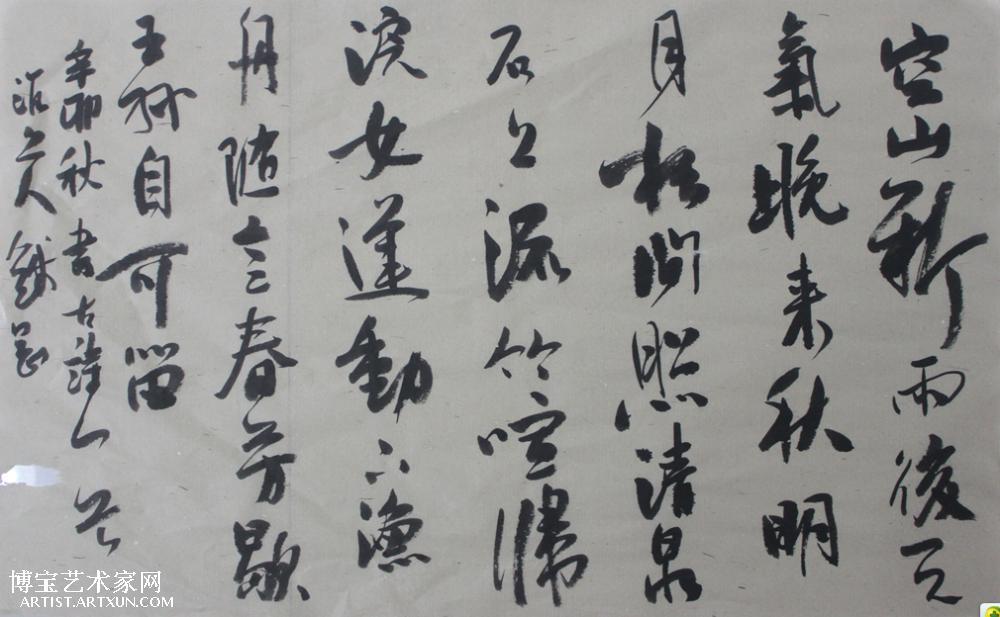 空山新雨後天
氣晚来秋明
月松间照清泉
石上流竹喧歸
浣女蓮動下漁
舟随意春芳歇
王孙自可留
辛卯秋書古詩一首
博宝艺术家网
ARTIST.ARTXUN.COM